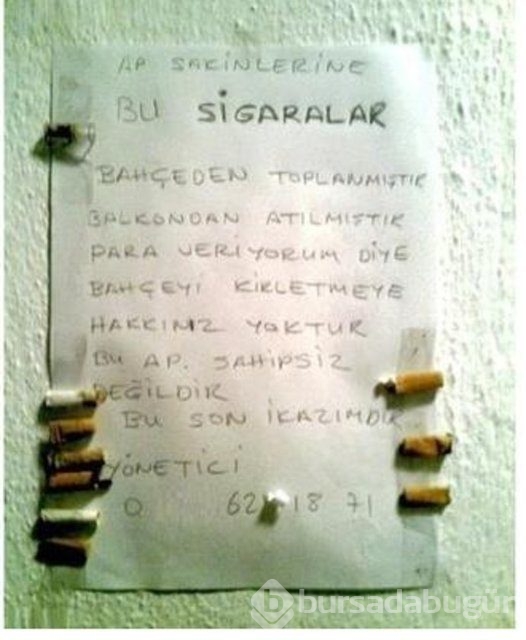 AP SAKİNLERİNE
BU SİGARALAR
BAHÇEDEN TOPLANMIŞTIR
BALKONDAN ATILMIŞTIR
PARA VERİYORUM DİYE
BAHÇEYİ KİRLETMEYE
HAKKINIZ YOKTUR
BU AP. SAHİPSİZ
DEĞİLDİR
BU SON İKAZIMDIR
YÖNETİCİ
0 62 18 71
b bursadabugün